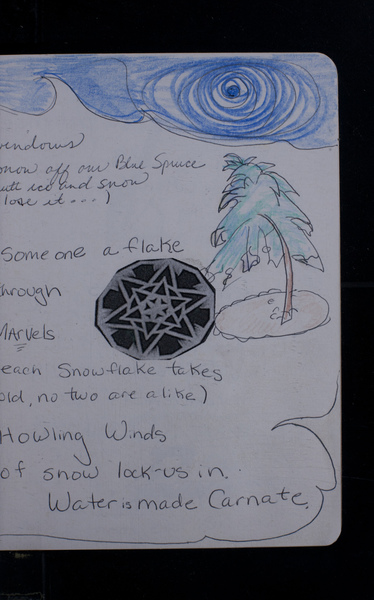 now off our Blue Spruce
ice and snow
lose it...)
Someone a flake
hrough
Marvels
each Snowflake takes
old, no two are alike)
Howling Winds
of snow lock-us in.
Water is made Carnate.